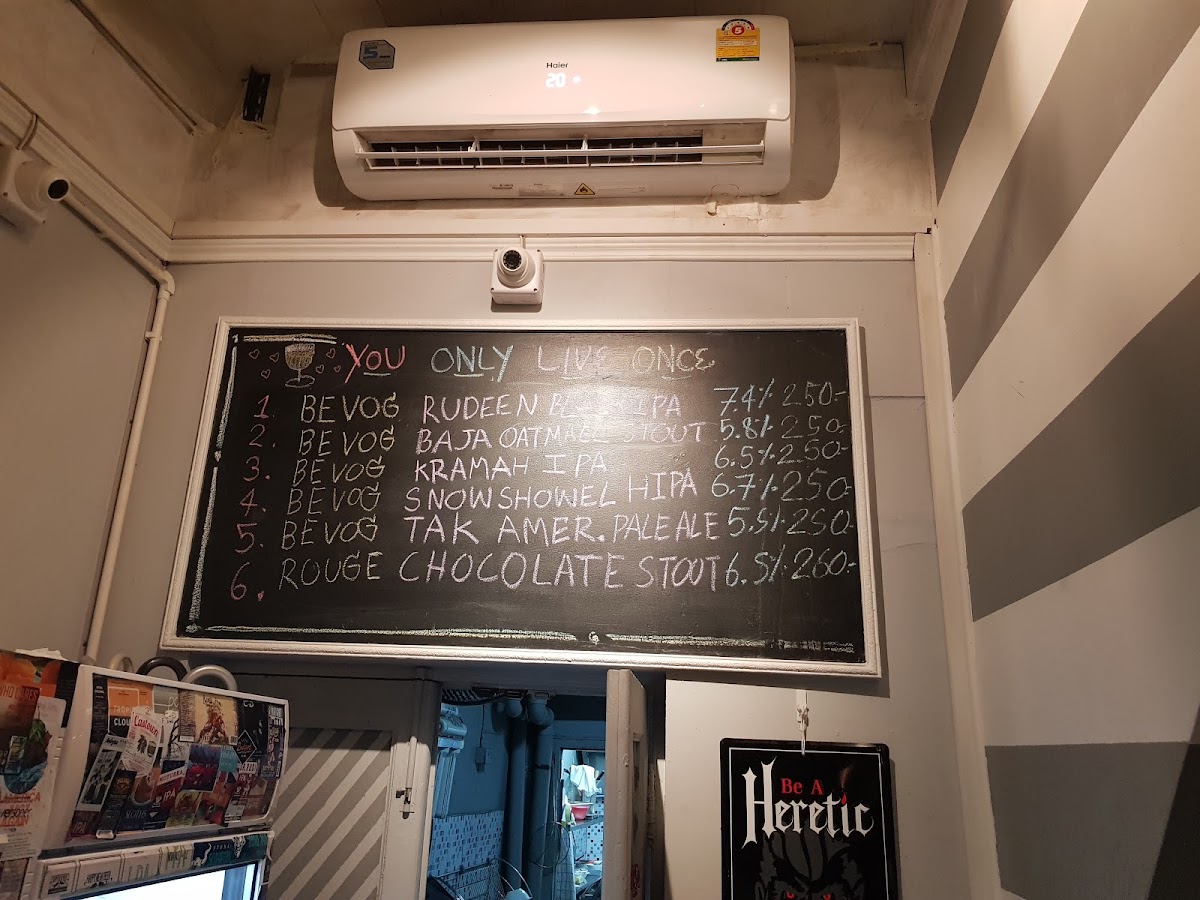 5
5
Haier
20
YOU ONLY LIVE ONCE
1. BEVOG RUDEEN IPA 7.4% 250-
2. BEVOG BAJA OATMAEL STOUT 5.8% 250-
3. BEVOG KRAMAH IPA 6.5% 250-
4. BEVOG SNOWSHOWEL HIPA 6.7% 250-
5. BEVOG TAK AMER. PALE ALE 5.5% 250-
6. ROUGE CHOCOLATE STOUT 6.5% 260-
Be A
Heretic
IPA